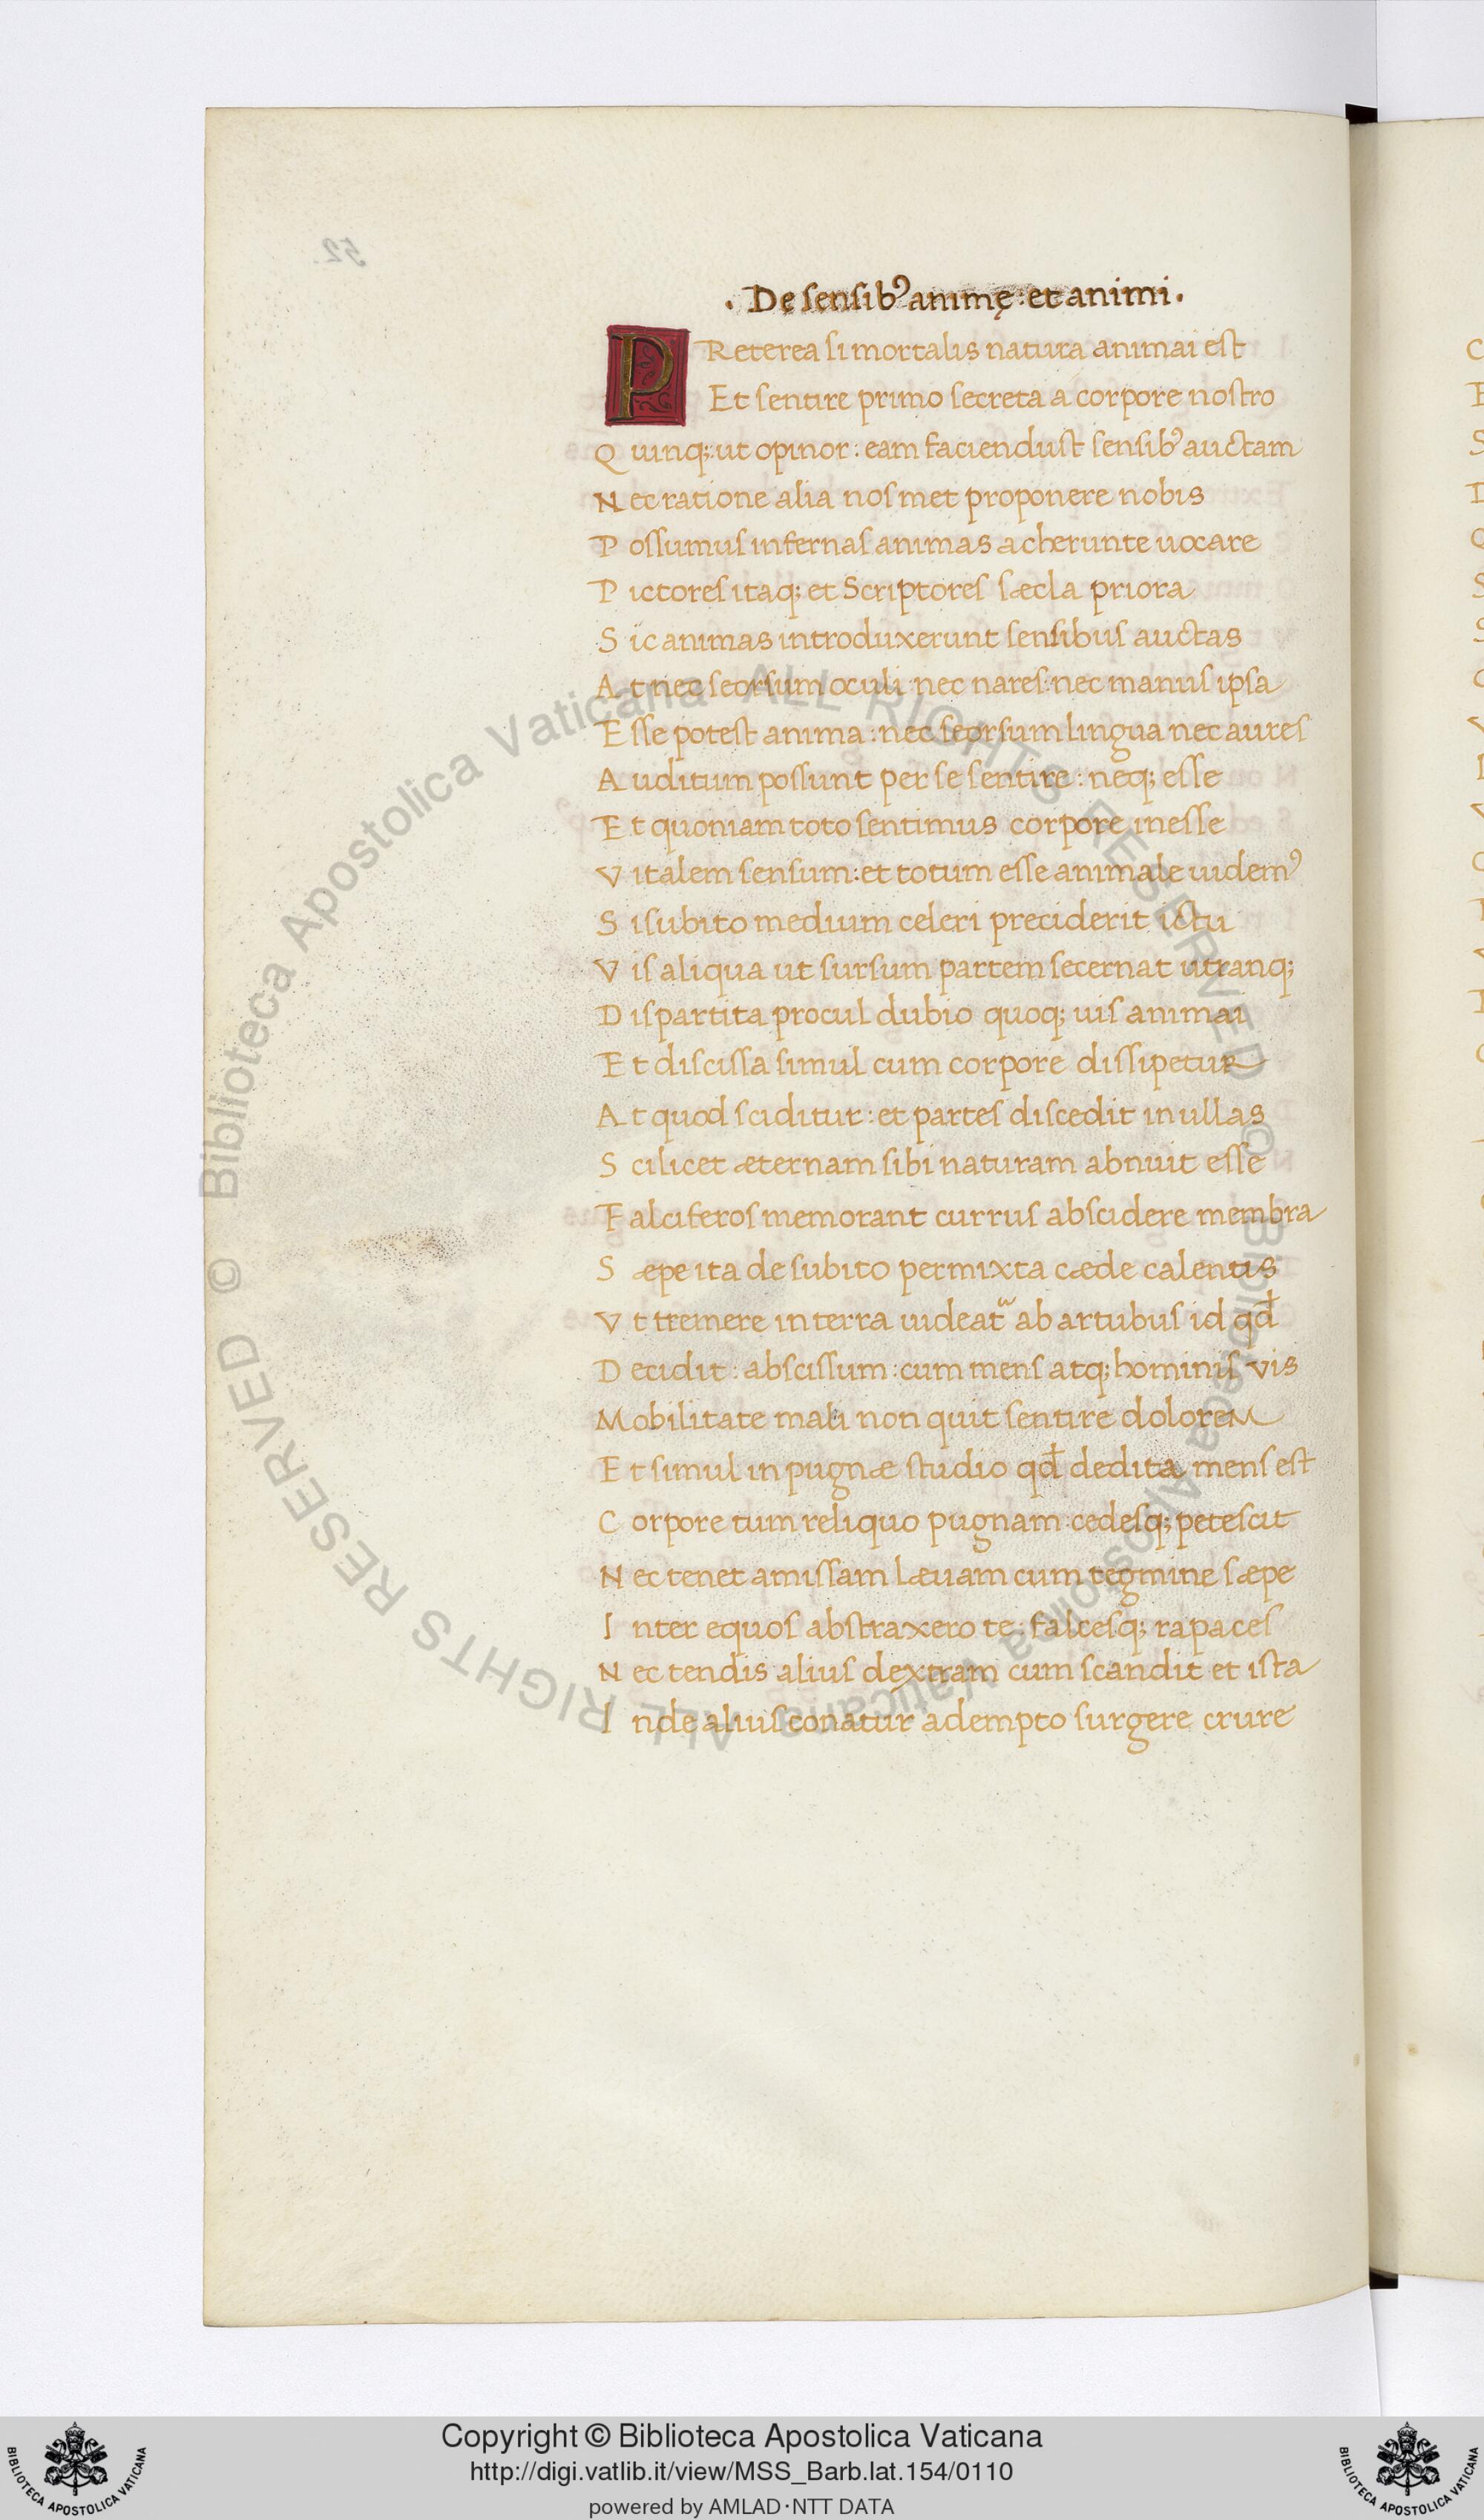 52.
. De sensibꝰ animę : et animi .
PReterea si mortalis natura animai est
Et sentire primo secreta a corpore nostro
Quinq; ut opinor : eam faciendust sensibꝰ auctam
Nec ratione alia nosmet proponere nobis
Possumus infernas animas acherunte uocare
Pictores itaq; et Scriptores sæcla priora
Sic animas introduxerunt sensibus auctas
At nec seorsum oculi : nec nares : nec manus ipsa
Esse potest anima : nec seorsum lingua nec aures
Auditum possunt per se sentire : neq; esse
Et quoniam toto sentimus corpore inesse
Vitalem sensum : et totum esse animale uidemꝰ
Si subito medium celeri preciderit ictu
Vis aliqua ut sursum partem secernat utranq;
Dispartita procul dubio quoq; uis animai
Et discissa simul cum corpore dissipetur
At quod sciditur : et partes discedit in ullas
Scilicet æternam sibi naturam abnuit esse
Falciferos memorant currus abscidere membra
Sæpe ita de subito permixta cæde calentis
Vt tremere in terra uideat᷑ ab artubus id qd̄
Decidit : abscissum : cum mens atq; hominis vis
Mobilitate mali non quit sentire dolorem
Et simul in pugnæ studio qd̄ dedita mens est
Corpore tum reliquo pugnam : cedesq; petescit
Nec tenet amissam læuam cum tegmine sæpe
Inter equos abstraxero te : falcesq; rapaces
Nec tendis alius dextram cum scandit et ista
Inde alius conatur adempto surgere crure
© Biblioteca Apostolica Vaticana ALL RIGHTS RESERVED © Biblioteca Apostolica Vaticana ALL RIGHTS RESERVED
Copyright © Biblioteca Apostolica Vaticana
http://digi.vatlib.it/view/MSS_Barb.lat.154/0110
powered by AMLAD·NTT DATA
BIBLIOTECA APOSTOLICA VATICANA
BIBLIOTECA APOSTOLICA VATICANA